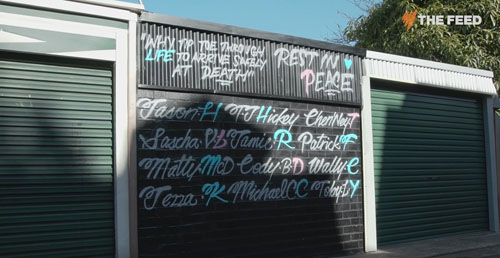 THE FEED
"WHY TIP TOE THROUGH
LIFE TO ARRIVE SAFELY
AT DEATH"
REST IN
PEACE
Jason.H TJ Hickey
Sascha Jamie.R Patrick.F
Matty.McD Cody.BD Wally.C
Jezza.K Michael.CC Toby.LY